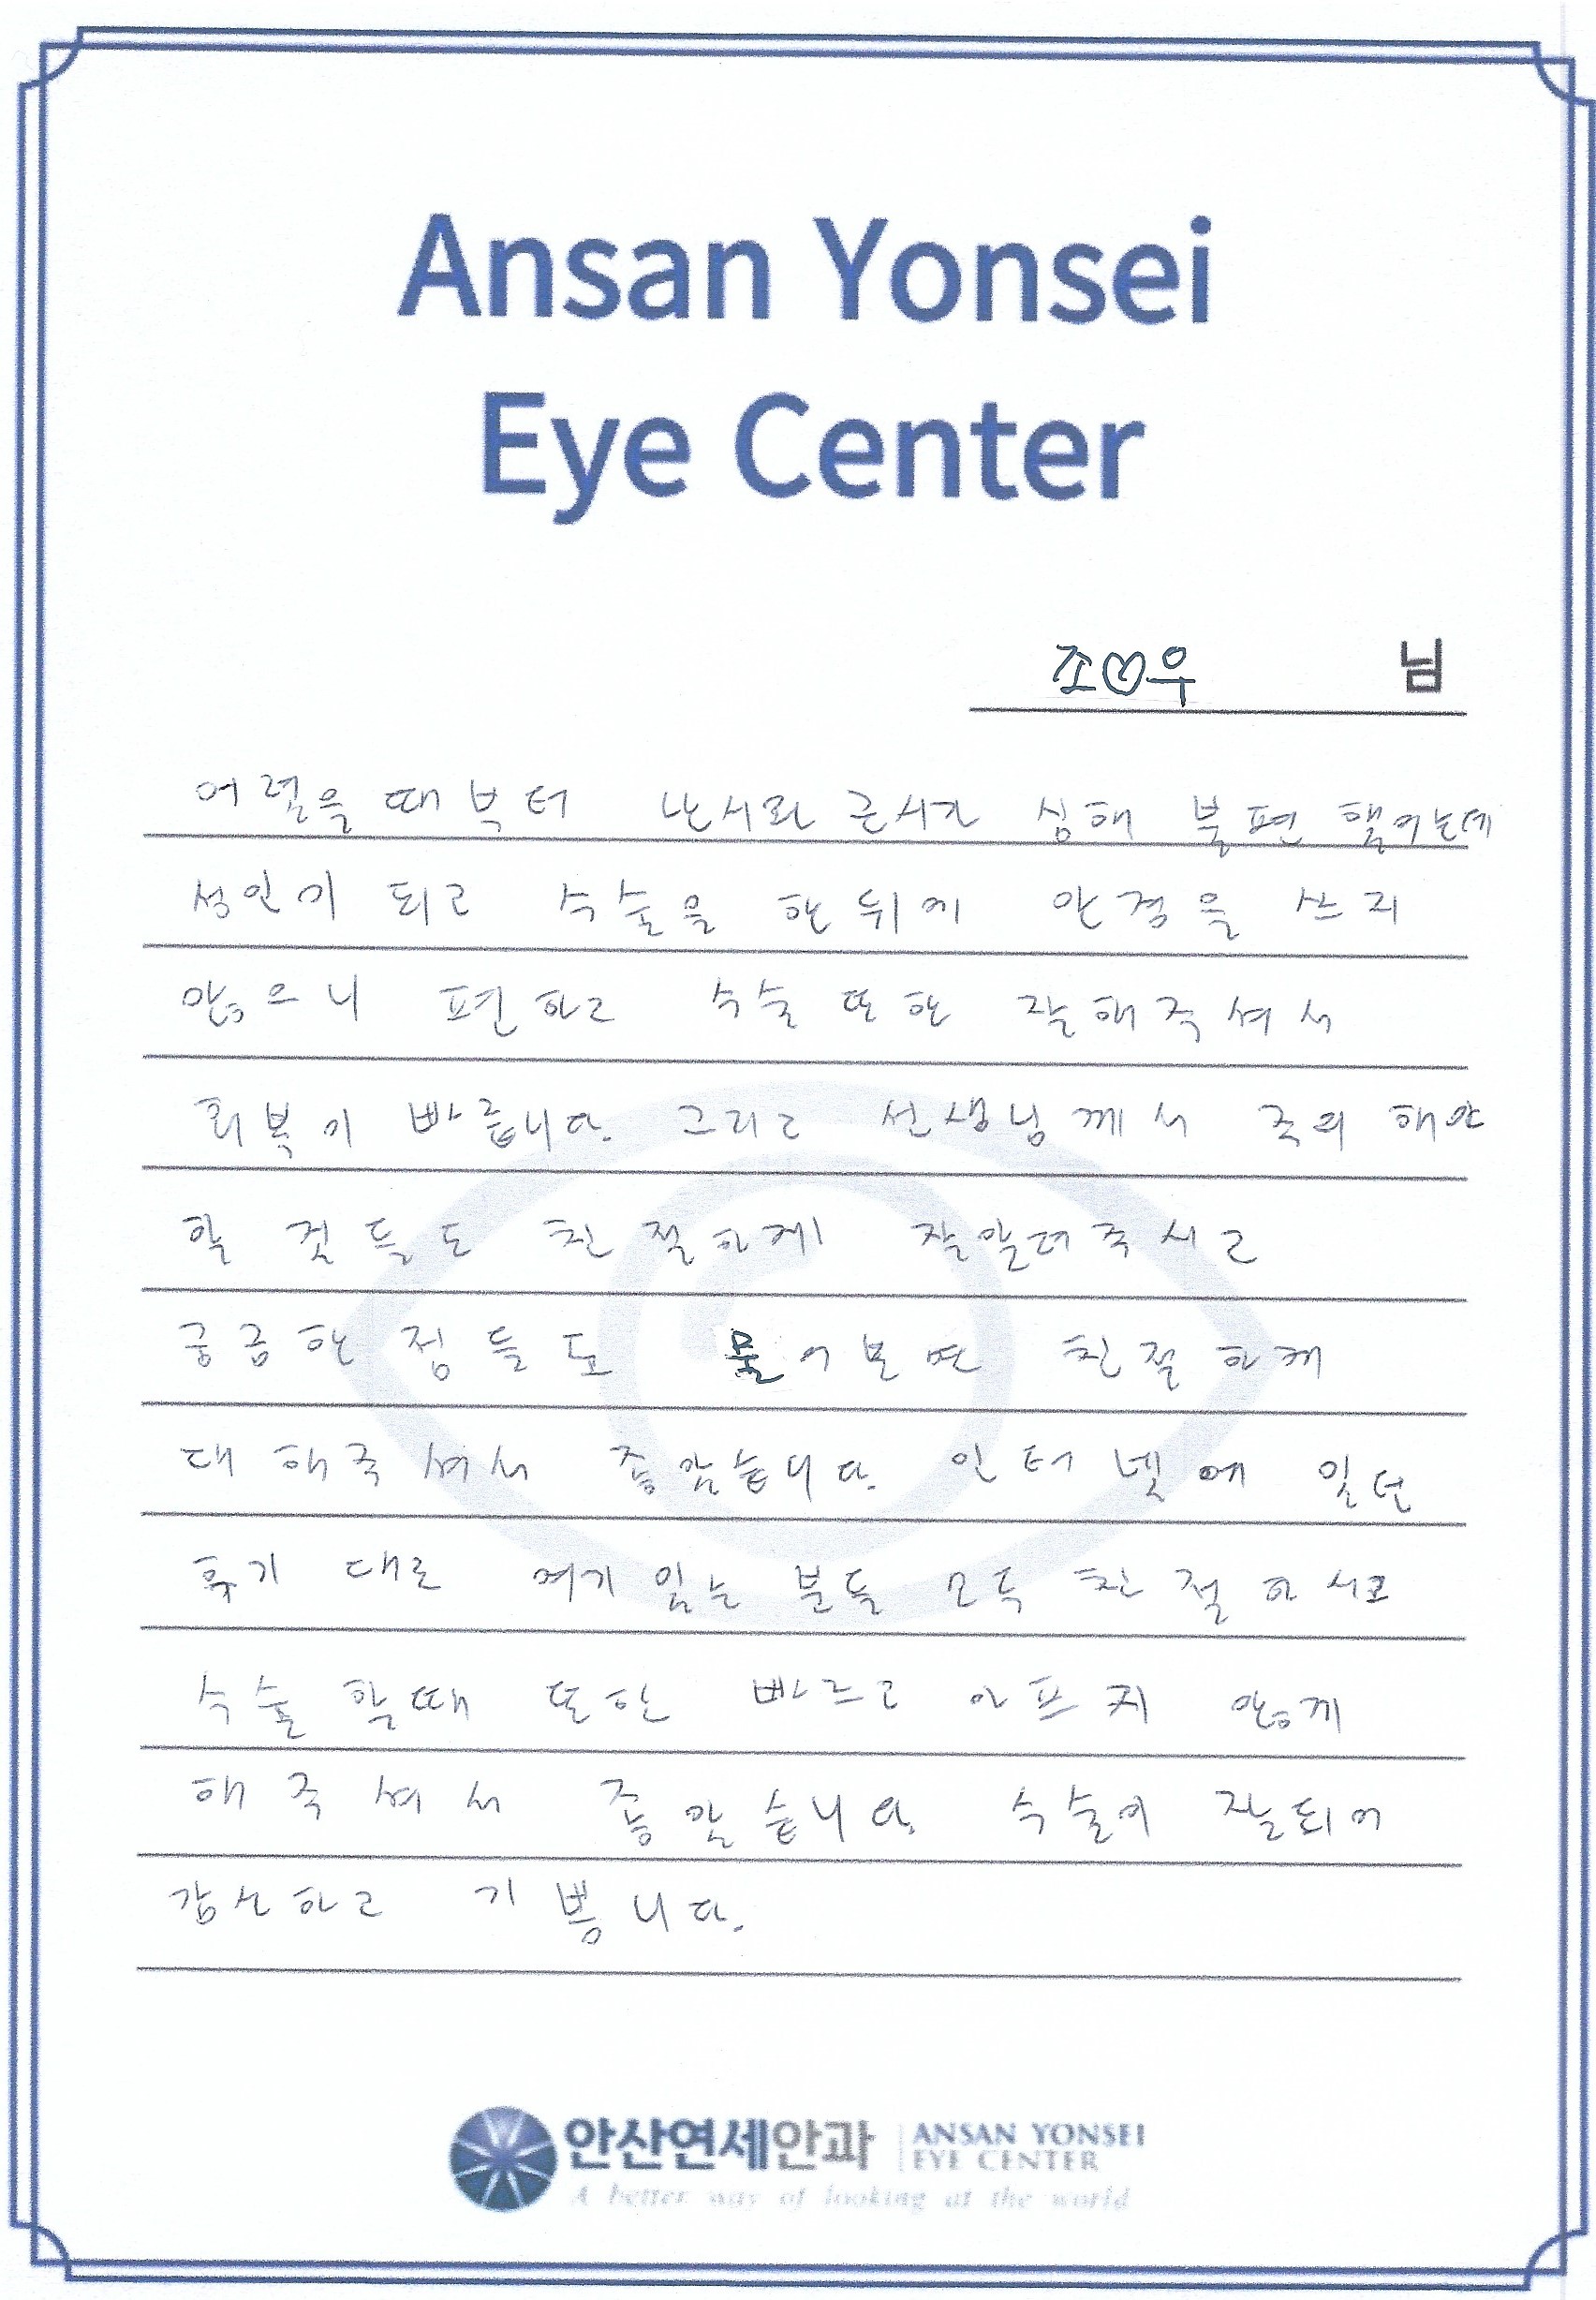 Ansan Yonsei
Eye Center
조♡우 님
어렸을 때부터 난시와 근시가 심해 불편 했었는데
성인이 되고 수술을 한뒤에 안경을 쓰지
않으니 편하고 수술 또한 잘해주셔서
회복이 빠릅니다. 그리고 선생님께서 주의 해야
할 것들도 친절하게 잘알려주시고
궁금한 점들도 물어보면 친절하게
대해주셔서 좋았습니다. 인터넷에 있던
후기 대로 여기 있는 분들 모두 친절하시고
수술 할때 또한 빠르고 아프지 않게
해주셔서 좋았습니다. 수술이 잘되어
감사하고 기쁩니다.
안산연세안과 ANSAN YONSEI
EYE CENTER
A better way of looking at the world